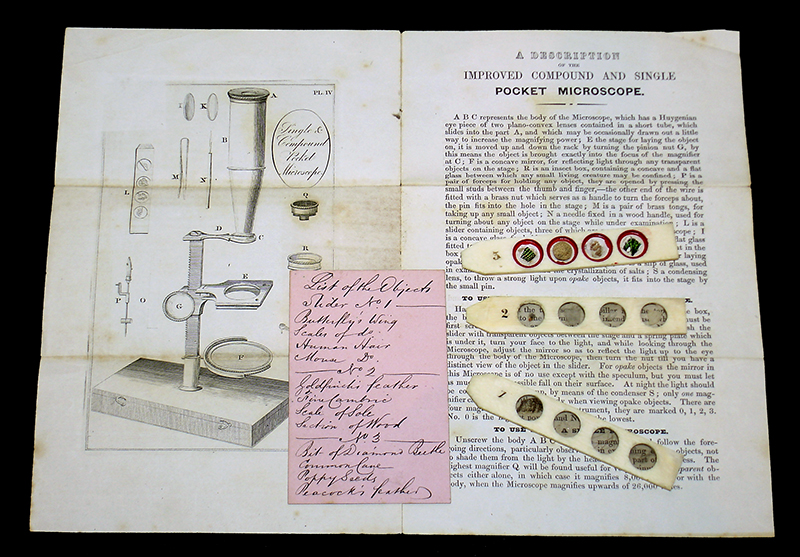 PL. IV
Single &
Compound
Pocket
Microscope
I
K
A
B
L
M
N
Q
D
C
R
E
P
O
G
F
List of the Objects
Slider No 1
Butterfly's Wing
Scales of do:
Human Hair
Mouse Do
No 2
Goldfinch's feather
Fine Cambric
Scale of Sole
Section of Wood
No 3
Bit of Diamond Beetle
Common Cane
Poppy Seeds
Peacock's feather
A DESCRIPTION
OF THE
IMPROVED COMPOUND AND SINGLE
POCKET MICROSCOPE.
A B C represents the body of the Microscope, which has a Huygenian
eye piece of two plano-convex lenses contained in a short tube, which
slides into the part A, and which may be occasionally drawn out a little
way to increase the magnifying power; E the stage for laying the object
on, it is moved up and down the rack by turning the pinion nut G, by
this means the object is brought exactly into the focus of the magnifier
at C; F is a concave mirror, for reflecting light through any transparent
objects on the stage; R is an insect box, containing a concave and a flat
glass between which any small living creature may be confined; P is a
pair of forceps for holding any object, they are opened by pressing the
small studs between the thumb and finger,—the other end of the wire is
fitted with a brass nut which serves as a handle to turn the forceps about,
the pin fits into the hole in the stage; M is a pair of brass tongs, for
taking up any small object; N a needle fixed in a wood handle, used for
turning about any object on the stage while under examination; L is a
slider containing objects, three of which
scope; I
is a concave glass
flat glass
fitted
box;
laying
opak
slip of glass, used
in exam
the crystallization of salts; S a condensing
lens, to throw a strong light upon opake objects, it fits into the stage by
the small pin.
3
TO US
2
Ha
the box,
to the
must be
first scr
the
slider with transparent objects between the stage and a spring plate which
is under it, turn your face to the light, and while looking through the
Microscope, adjust the mirror so as to reflect the light up to the eye
through the body of the Microscope, then turn the nut till you have a
distinct view of the object in the slider. For opake objects the mirror in
this Microscope is of no use except with the speculum, but you must let
as mu
possible fall on their surface. At night the light should
be
by means of the condenser S; only one mag-
nifier
when viewing opake objects. There are
four mag
instrument, they are marked 0, 1, 2, 3.
No. 0 is the
the lowest.
1
TO USE
MICROSCOPE.
Unscrew the body A B C
follow the fore-
going directions, particularly obser
objects, not
to shade them from the light by the hea
part of the
highest magnifier Q will be found useful for
transparent ob-
jects either alone, in which case it magnifies
or with the
body, when the Microscope magnifies upwards of 26,000